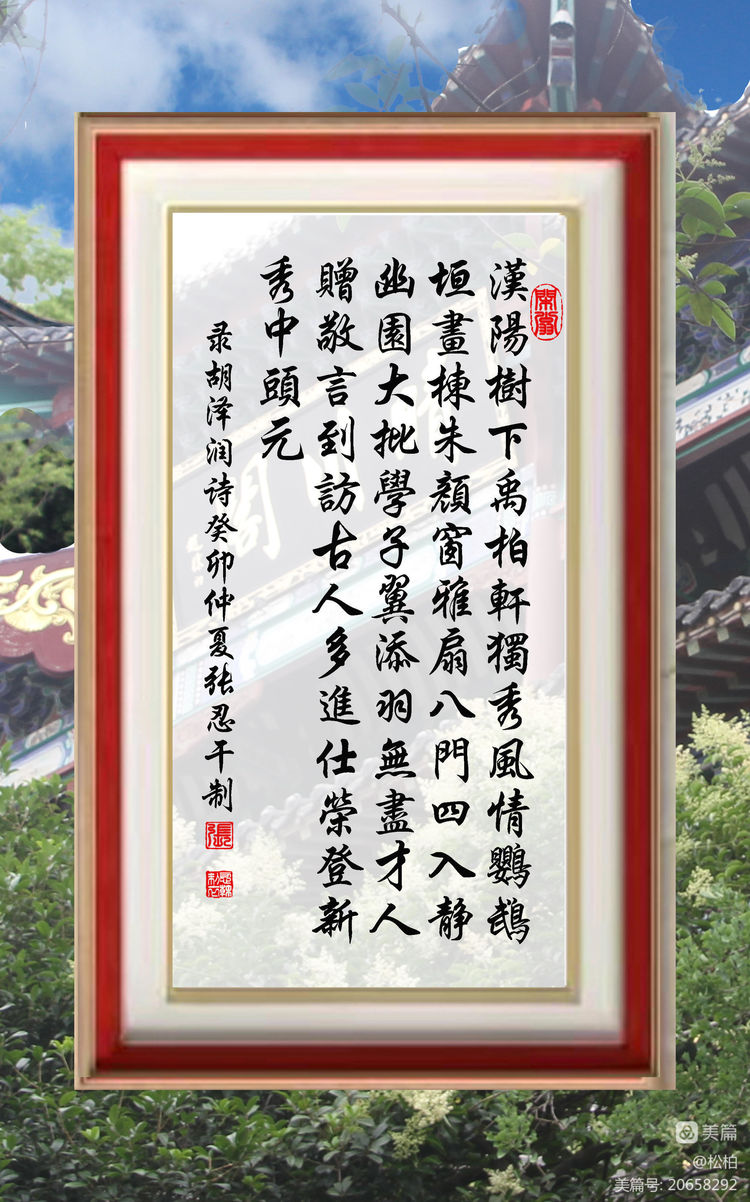 漢陽樹下禹柏軒獨秀風情鸚鵡
垣畫棟朱顏窗雅扇八門四入靜
幽園大批學子翼添羽無盡才人
贈敬言到訪古人多進仕榮登新
秀中頭元
录胡泽润诗癸卯仲夏张忍干制
張
美篇
@松柏
美篇号: 20658292